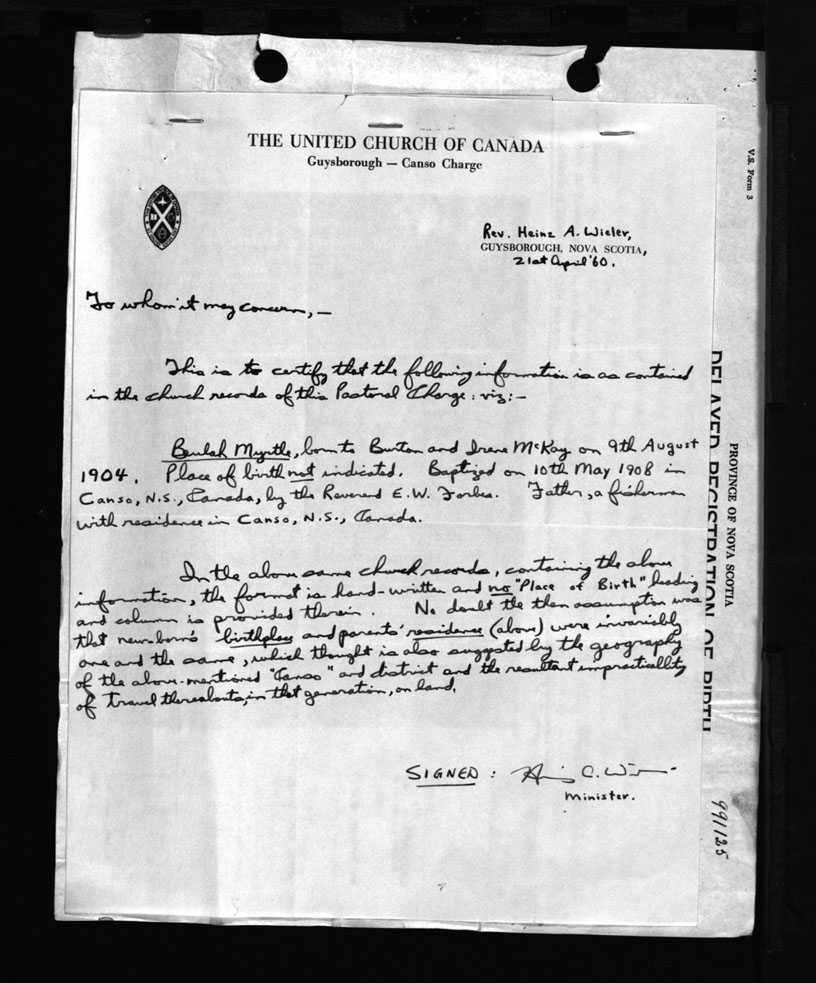 THE UNITED CHURCH OF CANADA
Guysborough — Canso Charge
Rev. Heinz A. Wieler,
GUYSBOROUGH, NOVA SCOTIA,
21st April '60.
To whom it may concern, —
This is to certify that the following information is as contained
in the church records of this Pastoral Charge: viz:—
Beulah Myrtle, born to Burton and Irene McKay on 9th August
1904. Place of birth not indicated. Baptized on 10th May 1908 in
Canso, N.S., Canada, by the Reverend E.W. Forbes. Father, a fisherman
with residence in Canso, N.S., Canada.
In the above same church records, containing the above
information, the format is hand-written and no "Place of Birth" heading
and column is provided therein. No doubt the then assumption was
that new-born's birthplace and parents' residence (above) were invariably
one and the same, which thought is also suggested by the geography
of the above-mentioned "Canso" and district and the resultant impracticallity
of travel thereabouts, in that generation, on land.
SIGNED:
Minister.
V.S. Form 3
PROVINCE OF NOVA SCOTIA
DELAYED REGISTRATION OF BIRTH
991125